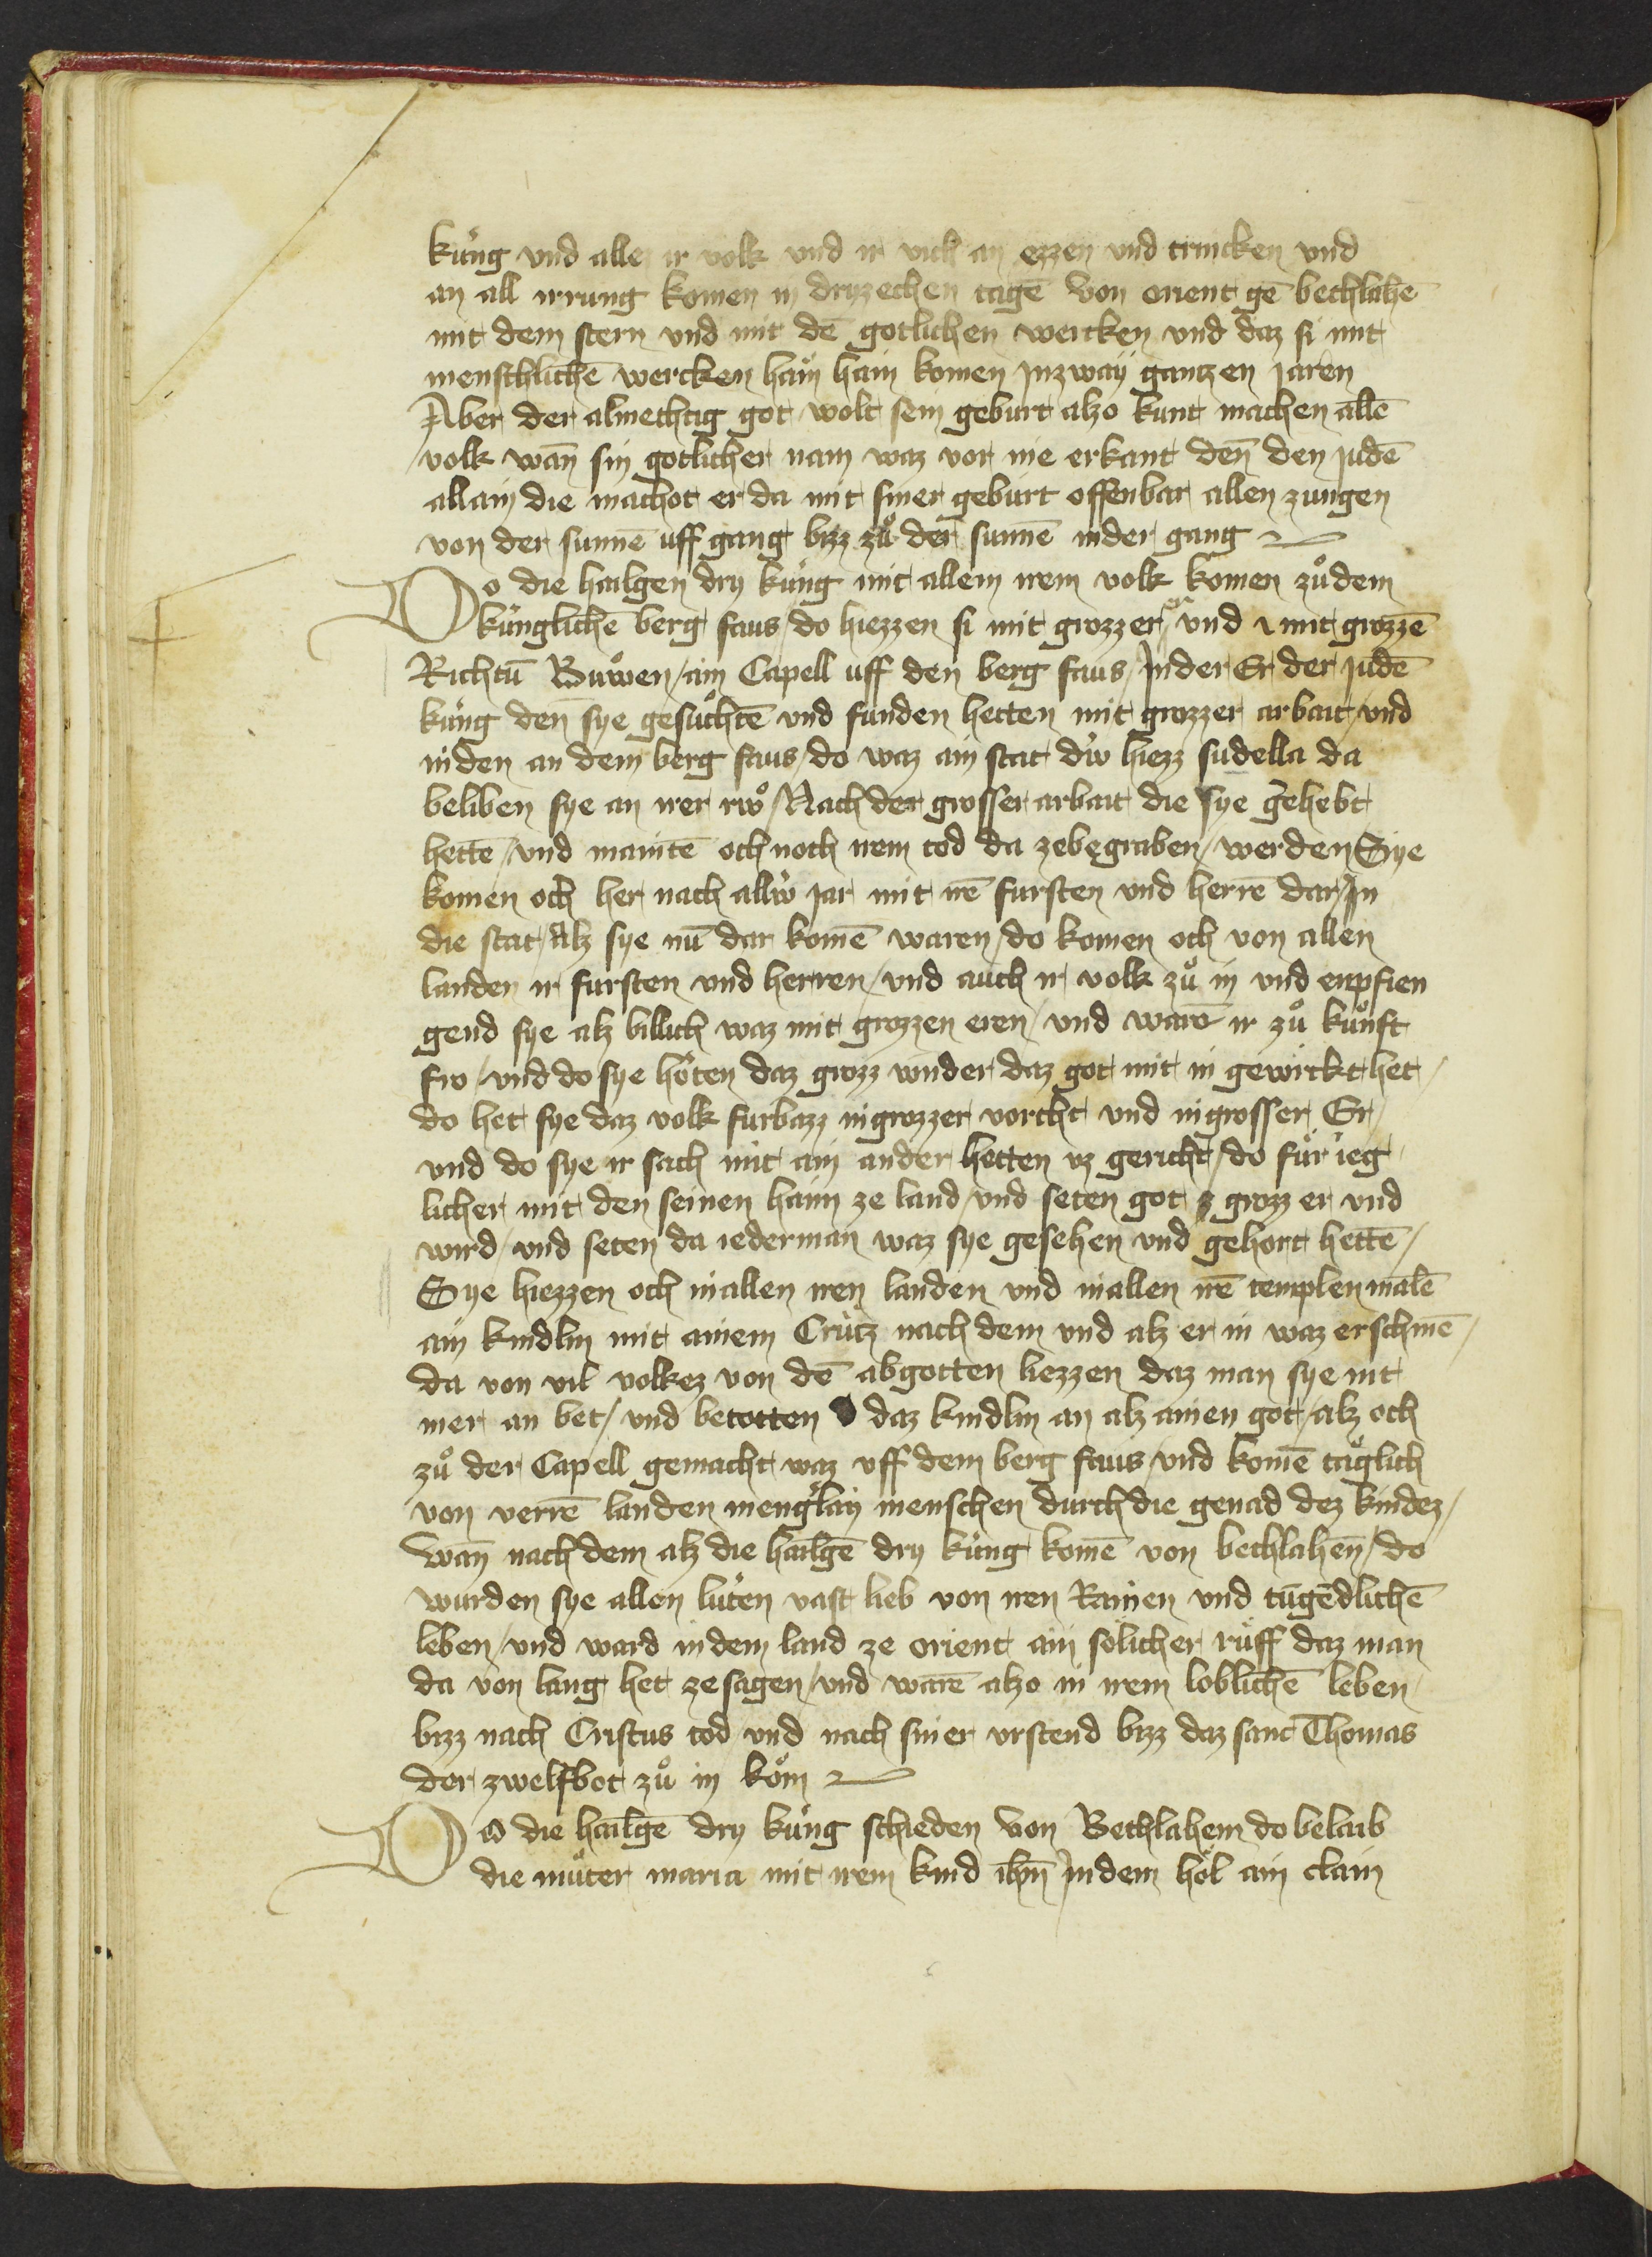 kúng vnd alle ir volk vnd ir vich an ezzen vnd trincken vnd
an all irrung komen in dryzechen tagē von orient gē bethlahē
mit dem stern vnd mit dē gotlichen wercken vnd daz si mit
menschlichē wercken haim komen jnzwaÿ gantzen jaren
Aber der almechtig got wolt sein geburt alzo kunt machen allē
volk wan̄ sin gotlicher nam waz vor nie erkant den̄ den judē
allain die machot er da mit siner geburt offenbar allen zungen
von der sunnē uff gang bizz zů der sunnē nider gang
Do die hailgen dry kúng mit allem irem volk komen zů dem
kúnglichē berg faus / do hiezzen si mit grozzer er vnd mit grozzē
Richtū Buwen / ain Capell uff den berg faus / Jn der Er der judē
kúng den sye gesůchtē vnd funden hetten mit grozzer arbait / vnd
niden an dem berg faus / do waz ain stat dú hiezz sudella da
beliben sye an irer rů / Nach der grosser arbait die sye gehebt
hettē / vnd maintē och noch irem tod da zebegraben / werden Sye
komen och her nach allú jar mit irē fursten vnd herrē dar / Jn
die stat / Alz sye nū dar komē waren / do komen och von allen
landen ir fursten vnd herren / vnd auch ir volk zů in vnd enpfien
gend sye alz billich waz mit grozzen eren / vnd warē ir zů kunft
fro / vnd do sye hörten daz grozz wnder daz got mit in gewirkt het /
do het sye daz volk furbazz in grozzer vorcht vnd in grosser Er /
vnd do sye ir sach mit ain ander hetten uz gericht / do fůr ieg
licher mit den seinen haim ze land / vnd seten got grozz er vnd
wird / vnd seten da iederman waz sye gesehen vnd gehort hettē /
Sye hiezzen och in allen iren landen vnd in allen irē templen malē
ain kindlin mit ainem Crútz nach dem vnd alz er in waz erschinē /
da von vil volkez von dē abgotten liezzen daz man sye nit
mer an bet / vnd betotten daz kindlin an alz ainen got / alz och
zů der Capell gemacht waz uff dem berg faus / vnd komē täglich
von verrē landen menglaÿ menschen durch die genad dez kindez /
wan̄ nach dem alz die hailgē dry kúng komē von bethlahen̄ / do
wurden sye allen lúten vast lieb von iren Rainen vnd tugēdlichē
leben / vnd ward in dem land ze orient ain sölicher růff daz man
da von lang het ze sagen / vnd warē alzo in irem loblichē leben
bizz nach Cristus tod vnd nach siner vrstend bizz daz sant Thomas
der zwelfbot zů in kom
Do die hailgē dry kúng schieden von Bethlahem do belaib
die můter maria mit irem kind ihn̄ Jn dem höl ain clain